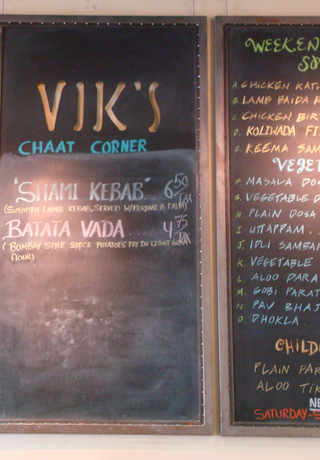 VIK'S
CHAAT CORNER
"SHAMI KEBAB" 6.50
(SMOOTH LAMB KEBAB, SERVED W/
BATATA VADA... 4.75
(BOMBAY STYLE SPICE POTATOES FRY IN LIGHT
FLOUR)
WEEKEN
A. CHICKEN KATH
B. LAMB BAIDA R
C. CHICKEN BIR
D. KOLIWADA FIS
E. KEEMA SAM
VEGET
F. MASALA DOS
G. VEGETABLE D
H. PLAIN DOSA
I. UTTAPPAM.
J. IDLI SAMBA
K. VEGETABLE
L. ALOO PARA
M. GOBI PARAT
N. PAV BHAJ
O. DHOKLA.
CHILD
PLAIN PAR
ALOO TIK
NE
SATURDAY-S